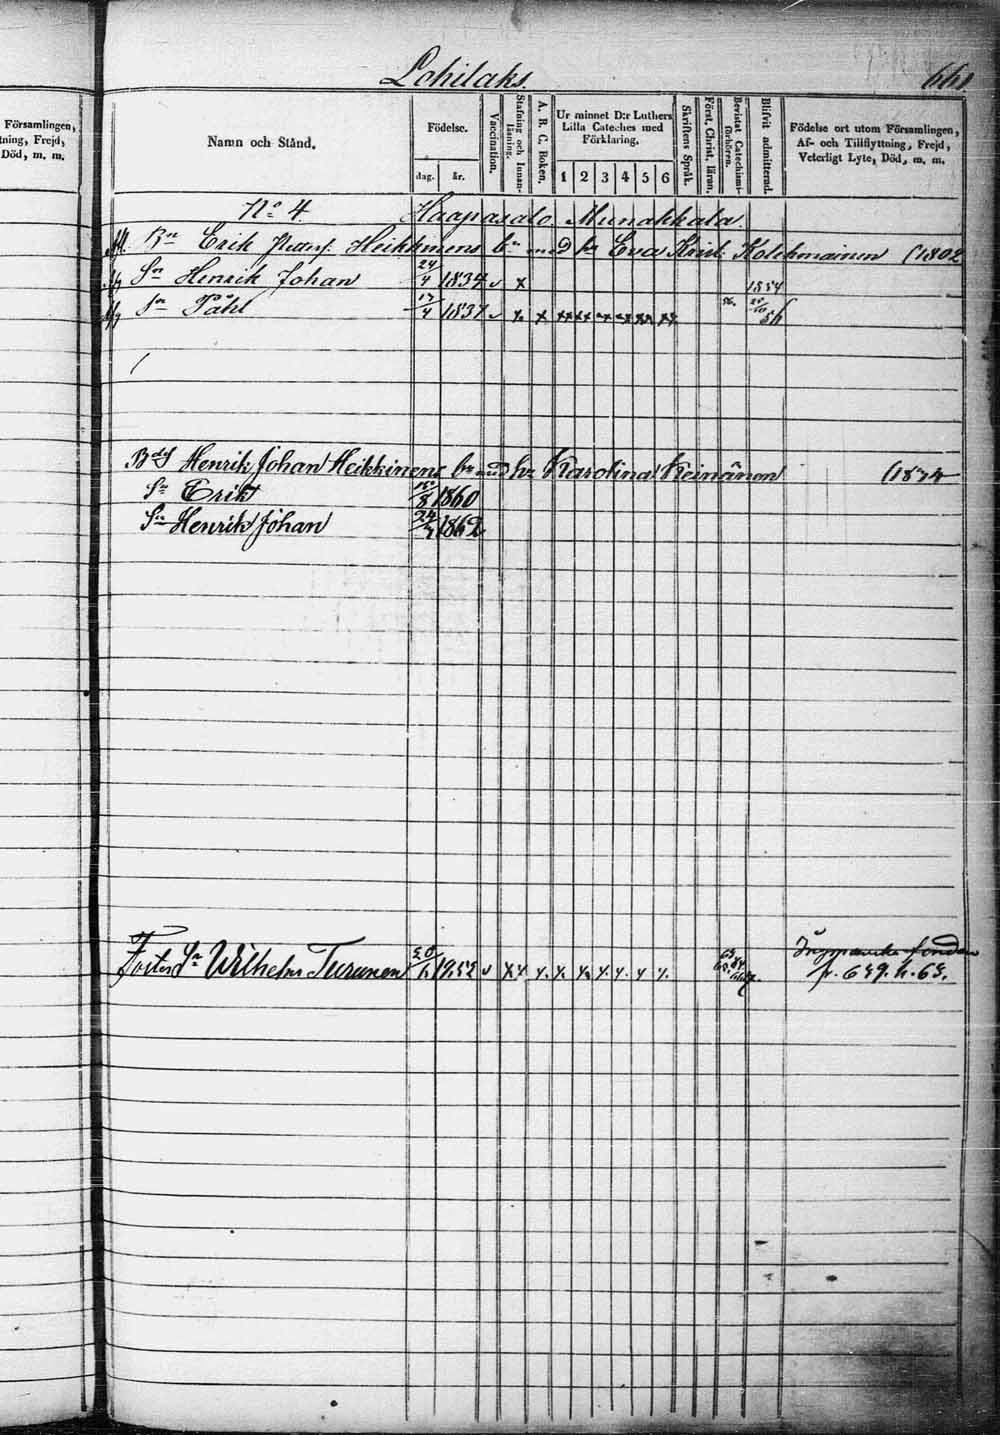 Lohilaks. 661
Församlingen,
tning, Frejd,
Död, m. m.
Namn och Stånd.
Födelse.
dag. år.
Vaccination.
Stafning och Innan-
läsning.
A. B. C. Boken.
Ur minnet D:r Luthers
Lilla Cateches med
Förklaring.
1 2 3 4 5 6
Skriftens Språk.
Först. Christ. läran.
Bevistat Catechismi-
förhören.
Blifvit admitterad.
Födelse ort utom Församlingen,
Af- och Tillflyttning, Frejd,
Veterligt Lyte, Död, m. m.
No 4. Haapasalo. Munakkala.
Bn Erik Petterss. Heikkinens bn med hr Eva Krist: Kolehmainen (1802
Sn Henrik Johan 24/4 1834 v x 1854
Sn Påhl 17/4 1837 v x x xx xx x x xx xx 56
Bds Henrik Johan Heikkinens bn med hr Karolina Keinänen (1834
Sn Erik /8 1860
Sn Henrik Johan 24/7 1862
Foster Sn Wilhelm Turunen 20/6 1952 v x x x. x. x x. x. x x. 63
p. 639. h. 63.